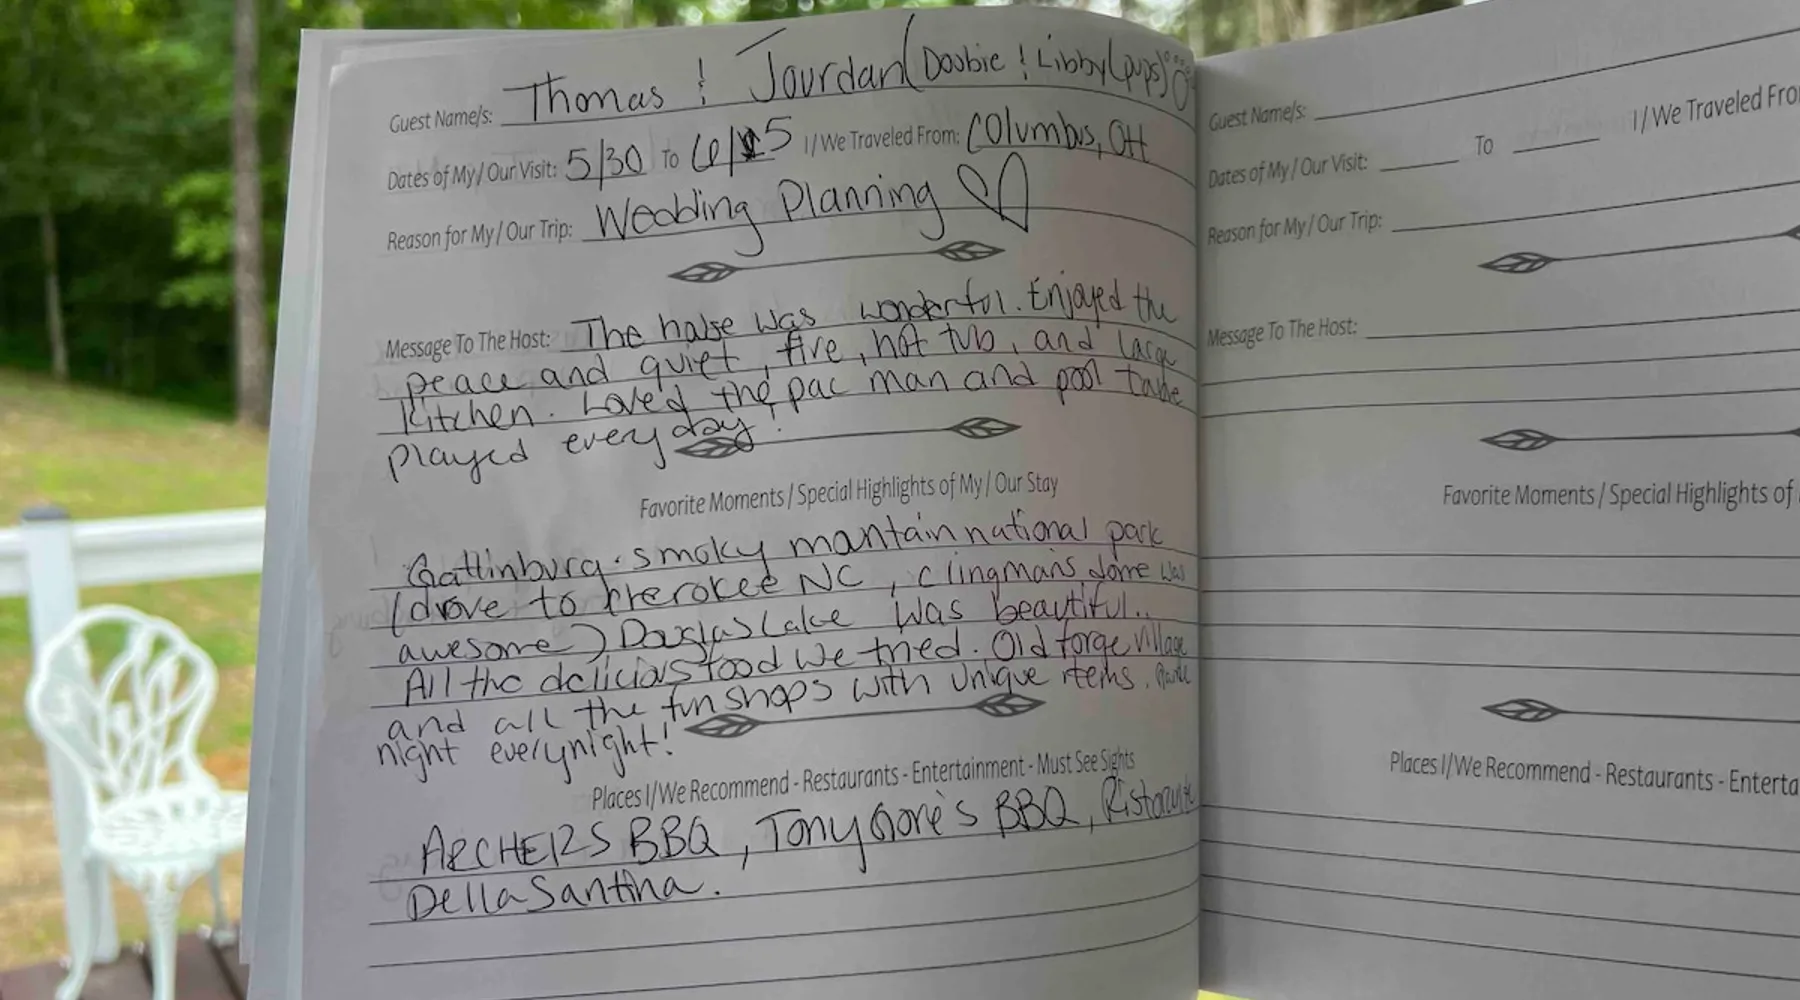 Guest Name/s: Thomas & Jourdan (Doobie & Libby (pups)
Dates of My / Our Visit: 5/30 To 6/5 I / We Traveled From: Columbus, OH
Reason for My / Our Trip: Wedding Planning
Message To The Host: The house was wonderful. Enjoyed the
peace and quiet, fire, hot tub, and large
kitchen. Loved the pac man and pool table
played everyday!
Favorite Moments / Special Highlights of My / Our Stay
Gatlinburg. smoky mountain national park
(drove to cherokee NC, clingmans dome was
awesome) Douglas Lake was beautiful..
All the delicious food we tried. Old forge village
and all the fun shops with unique items.
night everynight!
Places I/We Recommend - Restaurants - Entertainment - Must See Sights
ARCHERS BBQ, Tony Gore's BBQ, Ristorante
Della Santina.
Guest Name/s:
Dates of My / Our Visit: To I / We Traveled Fro
Reason for My / Our Trip:
Message To The Host:
Favorite Moments / Special Highlights of
Places I/We Recommend - Restaurants - Enterta